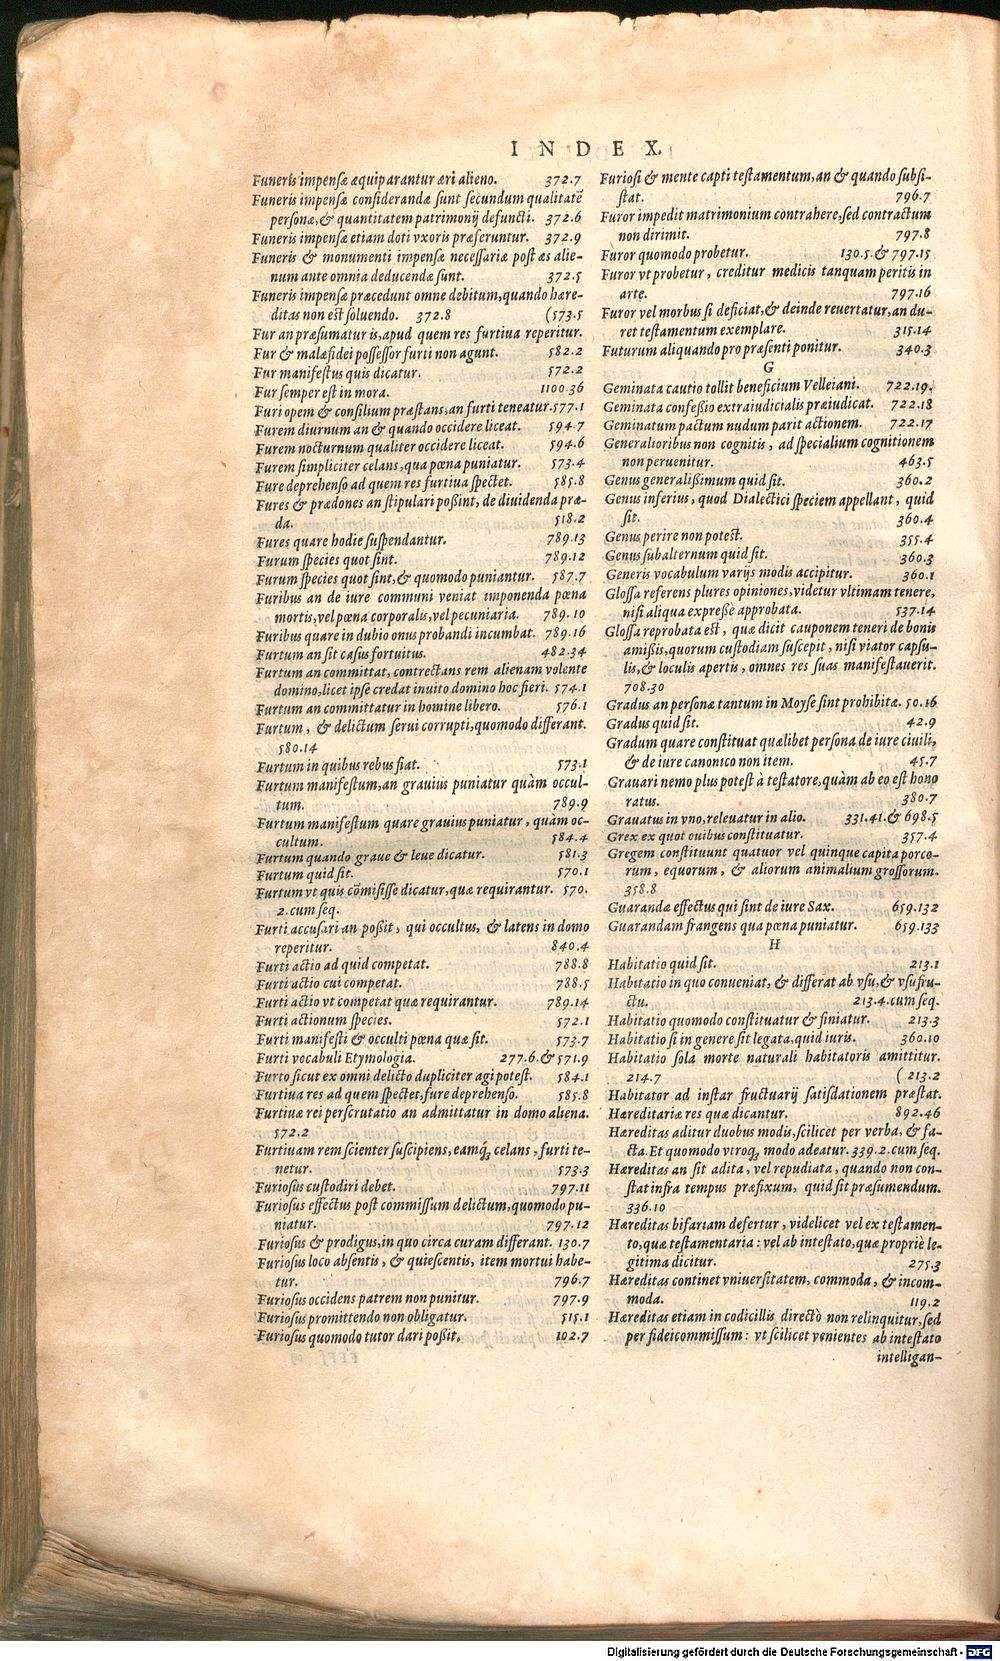 INDEX.
Funeris impenſæ æquiparantur æri alieno. 372.7
Funeris impenſæ conſiderandæ ſunt ſecundum qualitatē
perſonæ,& quantitatem patrimonij defuncti. 372.6
Funeris impenſæ etiam doti vxoris præferuntur. 372.9
Funeris & monumenti impenſæ neceſſariæ post æs alie-
num ante omnia deducendæ ſunt. 372.5
Funeris impenſæ præcedunt omne debitum,quando hære-
ditas non est ſoluendo. 372.8 (573.5
Fur an præſumatur is,apud quem res furtiua reperitur.
Fur & malæfidei poſſeſſor furti non agunt. 582.2
Fur manifeſtus quis dicatur. 572.2
Fur ſemper eſt in mora. 1100.36
Furi opem & conſilium præſtans,an furti teneatur.577.1
Furem diurnum an & quando occidere liceat. 594.7
Furem nocturnum qualiter occidere liceat. 594.6
Furem ſimpliciter celans,qua pœna puniatur. 573.4
Fure deprehenſo ad quem res furtiua ſpectet. 585.8
Fures & prædones an ſtipulari poſſint, de diuidenda præ-
da. 518.2
Fures quare hodie ſuſpendantur. 789.13
Furum ſpecies quot ſint. 789.12
Furum ſpecies quot ſint,& quomodo puniantur. 587.7
Furibus an de iure communi veniat imponenda pœna
mortis,vel pœna corporalis,vel pecuniaria. 789.10
Furibus quare in dubio onus probandi incumbat. 789.16
Furtum an ſit caſus fortuitus. 482.34
Furtum an committat, contrectans rem alienam volente
domino,licet ipſe credat inuito domino hoc fieri. 574.1
Furtum an committatur in homine libero. 576.1
Furtum, & delictum ſerui corrupti,quomodo differant.
580.14
Furtum in quibus rebus fiat. 573.1
Furtum manifeſtum,an grauius puniatur quàm occul-
tum. 789.9
Furtum manifeſtum quare grauius puniatur, quàm oc-
cultum. 584.4
Furtum quando graue & leue dicatur. 581.3
Furtum quid ſit. 570.1
Furtum vt quis cōmiſiſſe dicatur,quæ requirantur. 570.
2.cum ſeq.
Furti accuſari an poſſit, qui occultus, & latens in domo
reperitur. 840.4
Furti actio ad quid competat. 788.8
Furti actio cui competat. 788.5
Furti actio vt competat quæ requirantur. 789.14
Furti actionum ſpecies. 572.1
Furti manifeſti & occulti pœna quæ ſit. 573.7
Furti vocabuli Etymologia. 277.6.&571.9
Furto ſicut ex omni delicto dupliciter agi poteſt. 584.1
Furtiua res ad quem ſpectet,fure deprehenſo. 585.8
Furtiuæ rei perſcrutatio an admittatur in domo aliena.
572.2
Furtiuam rem ſcienter ſuſcipiens,eamq́; celans, furti te-
netur. 573.3
Furioſus cuſtodiri debet. 797.11
Furioſus effectus poſt commiſſum delictum,quomodo pu-
niatur. 797.12
Furioſus & prodigus,in quo circa curam differant. 130.7
Furioſus loco abſentis, & quieſcentis, item mortui habe-
tur. 796.7
Furioſus occidens patrem non punitur. 797.9
Furioſus promittendo non obligatur. 515.1
Furioſus quomodo tutor dari poſſit. 102.7
Furioſi & mente capti teſtamentum,an & quando ſubſi-
ſtat. 796.7
Furor impedit matrimonium contrahere,ſed contractum
non dirimit. 797.8
Furor quomodo probetur. 130.5.& 797.15
Furor vt probetur, creditur medicis tanquam peritis in
arte. 797.16
Furor vel morbus ſi deficiat,& deinde reuertatur,an du-
ret teſtamentum exemplare. 315.14
Futurum aliquando pro præſenti ponitur. 340.3
G
Geminata cautio tollit beneficium Velleiani. 722.19.
Geminata confeſſio extraiudicialis præiudicat. 722.18
Geminatum pactum nudum parit actionem. 722.17
Generalioribus non cognitis, ad ſpecialium cognitionem
non peruenitur. 463.5
Genus generaliſſimum quid ſit. 360.2
Genus inferius, quod Dialectici ſpeciem appellant, quid
ſit. 360.4
Genus perire non poteſt. 355.4
Genus ſubalternum quid ſit. 360.3
Generis vocabulum varijs modis accipitur. 360.1
Gloſſa referens plures opiniones,videtur vltimam tenere,
niſi aliqua expreſſè approbata. 537.14
Gloſſa reprobata eſt, quæ dicit cauponem teneri de bonis
amiſſis,quorum cuſtodiam ſuſcepit, niſi viator capſu-
lis,& loculis apertis, omnes res ſuas manifeſtauerit.
708.30
Gradus an perſonæ tantum in Moyſe ſint prohibitæ. 50.16
Gradus quid ſit. 42.9
Gradum quare conſtituat quælibet perſona de iure ciuili,
& de iure canonico non item. 45.7
Grauari nemo plus poteſt à teſtatore,quàm ab eo eſt hono
ratus. 380.7
Grauatus in vno,releuatur in alio. 331.41.& 698.5
Grex ex quot ouibus conſtituatur. 357.4
Gregem conſtituunt quatuor vel quinque capita porco-
rum, equorum, & aliorum animalium groſſorum.
358.8
Guarandæ effectus qui ſint de iure Sax. 659.132
Guarandam frangens qua pœna puniatur. 659.133
H
Habitatio quid ſit. 213.1
Habitatio in quo conueniat, & differat ab vſu,& vſufru-
ctu. 213.4.cum ſeq.
Habitatio quomodo conſtituatur & finiatur. 213.3
Habitatio ſi in genere ſit legata,quid iuris. 360.10
Habitatio ſola morte naturali habitatoris amittitur.
214.7 (213.2
Habitator ad inſtar fructuarij ſatiſdationem præſtat.
Hæreditariæ res quæ dicantur. 892.46
Hæreditas aditur duobus modis,ſcilicet per verba, & fa-
cta.Et quomodo vtroq́; modo adeatur.339.2.cum ſeq.
Hæreditas an ſit adita, vel repudiata, quando non con-
ſtat infra tempus præfixum, quid ſit præſumendum.
336.10
Hæreditas bifariam defertur, videlicet vel ex teſtamen-
to,quæ teſtamentaria: vel ab inteſtato,quæ propriè le-
gitima dicitur. 275.3
Hæreditas continet vniuerſitatem, commoda, & incom-
moda. 119.2
Hæreditas etiam in codicillis directò non relinquitur,ſed
per fideicommiſſum: vt ſcilicet venientes ab inteſtato
intelligan-
Digitalisierung gefördert durch die Deutsche Forschungsgemeinschaft - DFG